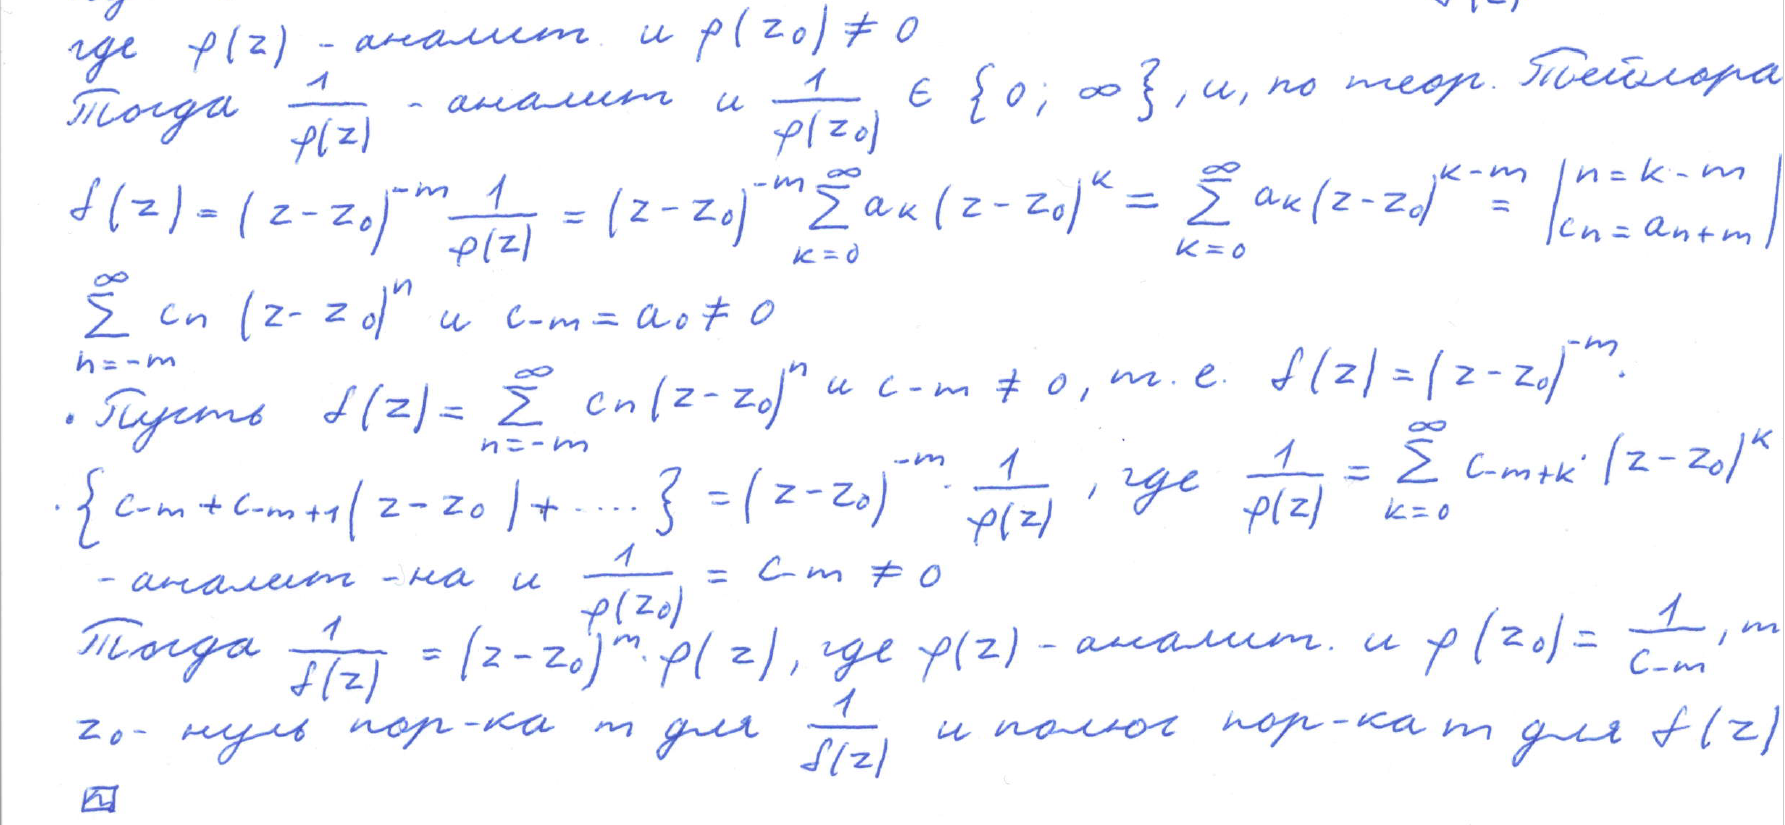 где φ(z) - аналит. и φ(z₀) ≠ 0
Тогда 1/φ(z) - аналит и 1/φ(z₀) ∈ {0; ∞}, и, по теор. Тейлора
f(z) = (z-z₀)^{-m} 1/φ(z) = (z-z₀)^{-m} ∑_{k=0}^{∞} a_k (z-z₀)^k = ∑_{k=0}^{∞} a_k (z-z₀)^{k-m} = |n=k-m, c_n=a_{n+m}|
∑_{n=-m}^{∞} c_n (z-z₀)^n и c_{-m} = a₀ ≠ 0
• Пусть f(z) = ∑_{n=-m}^{∞} c_n (z-z₀)^n и c_{-m} ≠ 0, т.е. f(z) = (z-z₀)^{-m} ·
· {c_{-m} + c_{-m+1}(z-z₀) + ....} = (z-z₀)^{-m} · 1/φ(z), где 1/φ(z) = ∑_{k=0}^{∞} c_{-m+k} · (z-z₀)^k
- аналит-на и 1/φ(z₀) = c_{-m} ≠ 0
Тогда 1/f(z) = (z-z₀)^m · φ(z), где φ(z) - аналит. и φ(z₀) = 1/c_{-m}, т
z₀ - нуль пор-ка m для 1/f(z) и полюс пор-ка m для f(z)